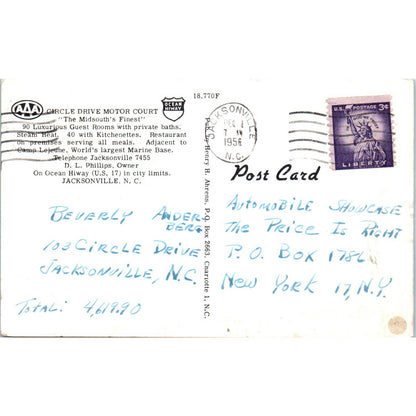 18,770F
AAA
CIRCLE DRIVE MOTOR COURT
OCEAN
HIWAY
"The Midsouth's Finest"
90 Luxurious Guest Rooms with private baths.
Steam Heat, 40 with Kitchenettes. Restaurant
on premises serving all meals. Adjacent to
Camp Lejeune, World's largest Marine Base.
Telephone Jacksonville 7455
D. L. Phillips, Owner
On Ocean Hiway (U.S. 17) in city limits.
JACKSONVILLE, N. C.
BEVERLY ANDER-
BERG
103 CIRCLE DRIVE
JACKSONVILLE, N.C.
TOTAL: 4,619.90
Pub. by Henry H. Ahrens, P.O. Box 2663, Charlotte 1, N.C.
JACKSONVILLE
DEC 1
1956
N.C.
U.S. POSTAGE 3¢
LIBERTY
Post Card
AUTOMOBILE SHOWCASE
THE PRICE IS RIGHT
P. O. BOX 1786
NEW YORK 17, N.Y.